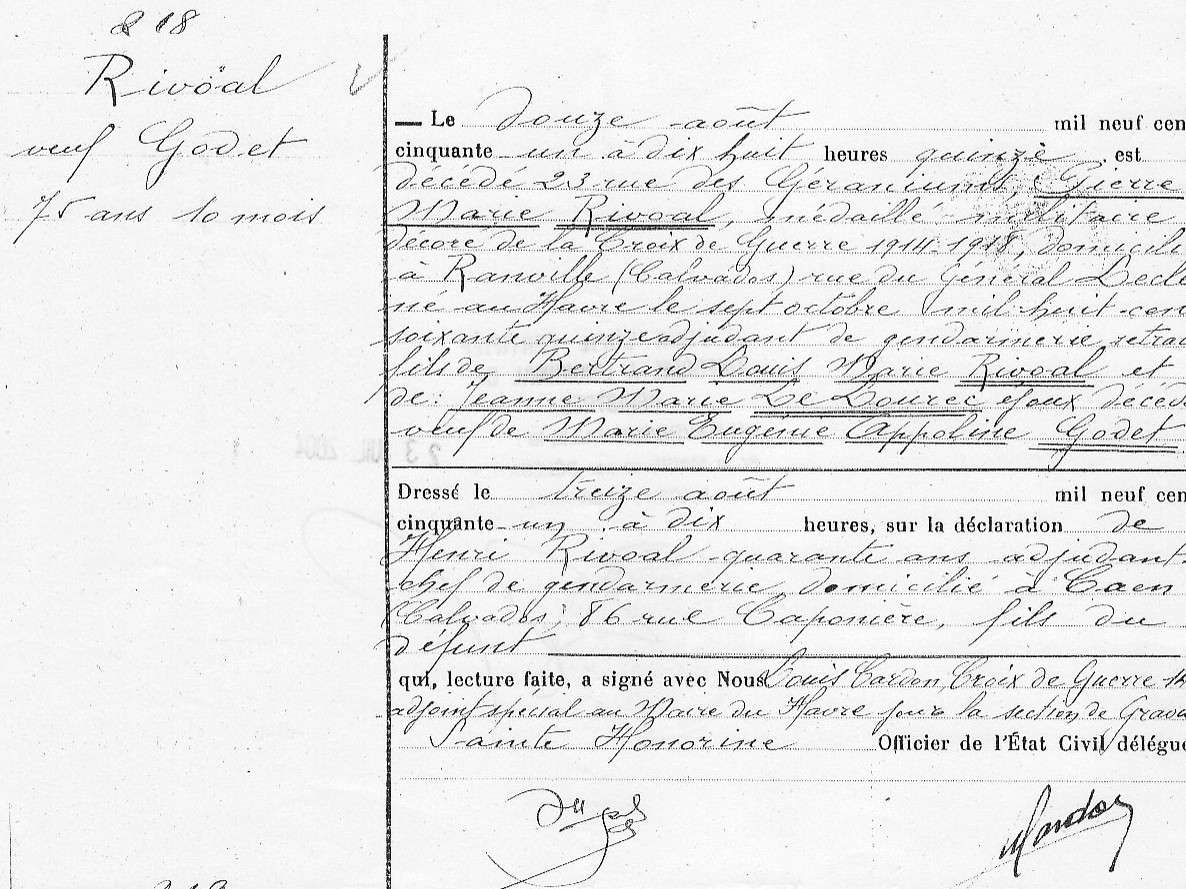 218
Rivoal
veuf Godet
75 ans 10 mois
Le douze août mil neuf cen
cinquante un à dix huit heures quinze est
décédé 23 rue des Géraniums, Pierre
Marie Rivoal, médaillé militaire
décoré de la Croix de Guerre 1914-1918, domicili
à Ranville (Calvados) rue du Général Lecle
né au Havre le sept octobre mil huit cen
soixante quinze adjudant de gendarmerie retrai
fils de Bertrand Louis Marie Rivoal et
de: Jeanne Marie Le Dourec époux décédé
veuf de Marie Eugénie Appoline Godet
Dressé le treize août mil neuf cen
cinquante un à dix heures, sur la déclaration de
Henri Rivoal quarante ans adjudant
chef de gendarmerie, domicilié à Caen
(Calvados), 86 rue Caponière, fils du
défunt
qui, lecture faite, a signé avec Nous Louis Cardon, Croix de Guerre 14
adjoint spécial au Maire du Havre pour la section de Grav
Sainte Honorine Officier de l'État Civil délégué